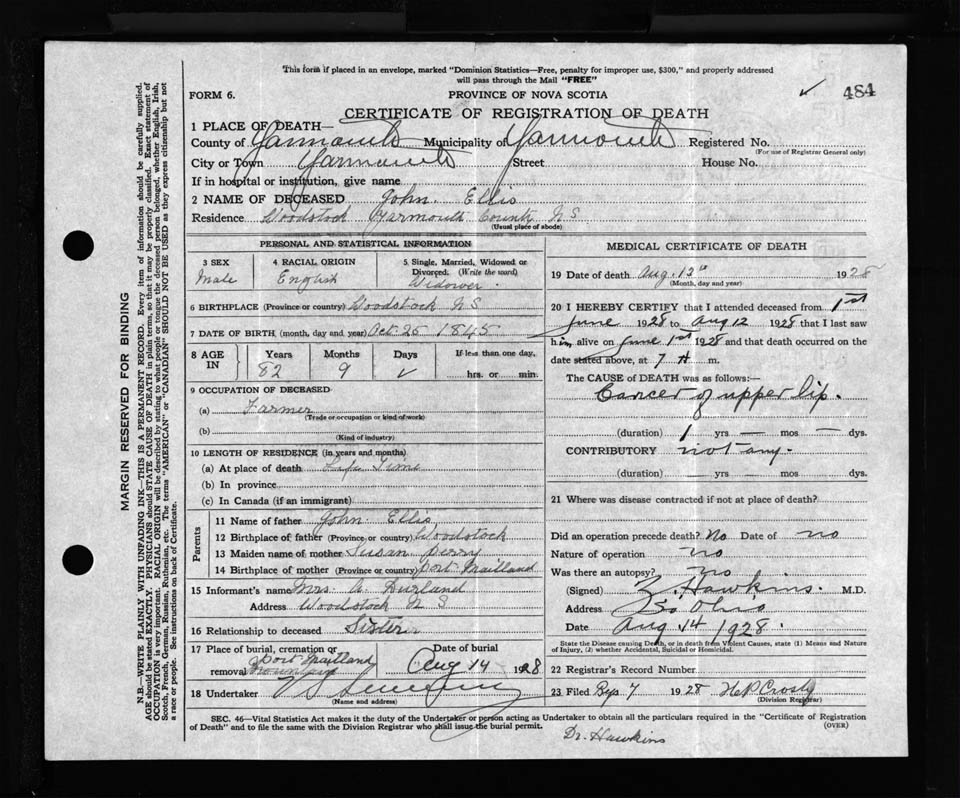 This form if placed in an envelope, marked "Dominion Statistics—Free, penalty for improper use, $300," and properly addressed
will pass through the Mail "FREE"
FORM 6.
PROVINCE OF NOVA SCOTIA
✓ 484
CERTIFICATE OF REGISTRATION OF DEATH
1 PLACE OF DEATH—
County of Yarmouth Municipality of Yarmouth Registered No.
(For use of Registrar General only)
City or Town Yarmouth Street House No.
If in hospital or institution, give name
2 NAME OF DECEASED John Ellis
Residence Woodstock Yarmouth County N S
(Usual place of abode)
PERSONAL AND STATISTICAL INFORMATION
3 SEX 4 RACIAL ORIGIN 5 Single, Married, Widowed or
Divorced. (Write the word)
Male English Widower.
6 BIRTHPLACE (Province or country) Woodstock N S
7 DATE OF BIRTH, (month, day and year) Oct 25 1845
8 AGE IN Years Months Days If less than one day,
82 9 ✓ hrs. or min.
9 OCCUPATION OF DECEASED
(a) Farmer
(Trade or occupation or kind of work)
(b)
(Kind of industry)
10 LENGTH OF RESIDENCE (in years and months)
(a) At place of death Life Time
(b) In province
(c) In Canada (if an immigrant)
Parents
11 Name of father John Ellis
12 Birthplace of father (Province or country) Woodstock
13 Maiden name of mother Susan Perry
14 Birthplace of mother (Province or country) Port Maitland
15 Informant's name Mrs. A. Durland
Address Woodstock N S
16 Relationship to deceased Sister
17 Place of burial, cremation or Date of burial
removal Port Maitland Aug 14 1928
18 Undertaker
(Name and address)
MEDICAL CERTIFICATE OF DEATH
19 Date of death Aug. 12th 1928
(Month, day and year)
20 I HEREBY CERTIFY that I attended deceased from 1st
June 1928 to Aug 12 1928 that I last saw
him alive on June 1st 1928 and that death occurred on the
date stated above, at 7 A m.
The CAUSE of DEATH was as follows:—
Cancer of upper lip.
(duration) 1 yrs — mos — dys.
CONTRIBUTORY not any.
(duration) yrs. mos. dys.
21 Where was disease contracted if not at place of death?
Did an operation precede death? No Date of no
Nature of operation no
Was there an autopsy? no
(Signed) Z. Hawkins. M.D.
Address So Ohio
Date Aug 14 1928.
State the Disease causing Death, or in death from Violent Causes, state (1) Means and Nature
of Injury, (2) whether Accidental, Suicidal or Homicidal.
22 Registrar's Record Number
23 Filed Sep 7 1928 H.P. Crosby
(Division Registrar)
SEC. 46—Vital Statistics Act makes it the duty of the Undertaker or person acting as Undertaker to obtain all the particulars required in the "Certificate of Registration
of Death" and to file the same with the Division Registrar who shall issue the burial permit. (OVER)
Dr. Hawkins
MARGIN RESERVED FOR BINDING
N.B.—WRITE PLAINLY WITH UNFADING INK—THIS IS A PERMANENT RECORD. Every item of information should be carefully supplied.
AGE should be stated EXACTLY. PHYSICIANS should STATE CAUSE OF DEATH in plain terms, so that it may be properly classified. Exact statement of
OCCUPATION is very important. RACIAL ORIGIN will be described by stating to what people or tongue the deceased person belonged, whether English, Irish,
Scotch, French, German, Russian, Ruthenian, etc. The terms "AMERICAN" or "CANADIAN" SHOULD NOT BE USED as they express citizenship but not
a race or people. See instructions on back of Certificate.